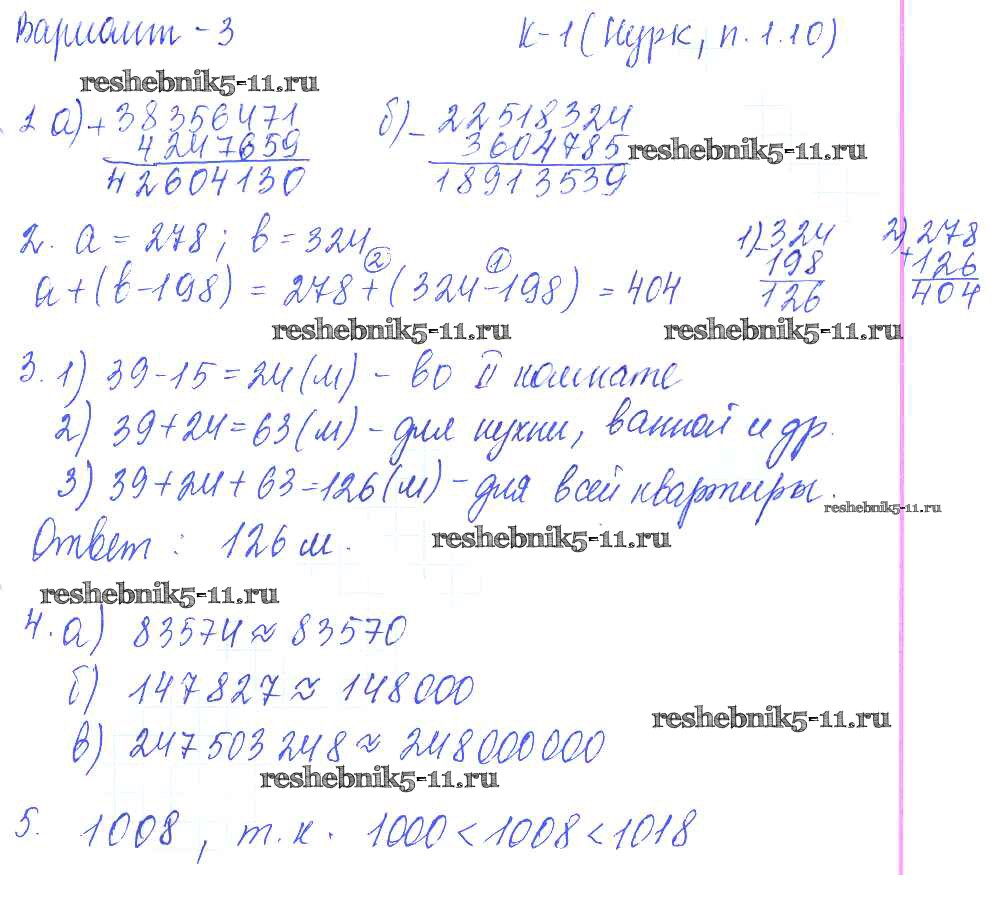 Вариант - 3 К-1 (Нурк, п. 1.10)
reshebnik5-11.ru
1 а) + 38356471 б) - 22518324
4247659 3604785 reshebnik5-11.ru
42604130 18913539
2. а = 278; в = 324 1) - 324 2) + 278
② ① 198 126
а + (в - 198) = 278 + (324 - 198) = 404 126 404
reshebnik5-11.ru reshebnik5-11.ru
3. 1) 39 - 15 = 24 (м) - во II комнате
2) 39 + 24 = 63 (м) - для кухни, ванной и др.
3) 39 + 24 + 63 = 126 (м) - для всей квартиры.
reshebnik5-11.ru
Ответ: 126 м. reshebnik5-11.ru
reshebnik5-11.ru
4. а) 83574 ≈ 83570
б) 147827 ≈ 148000
reshebnik5-11.ru
в) 247503248 ≈ 248000000
reshebnik5-11.ru
5. 1008, т.к. 1000 < 1008 < 1018